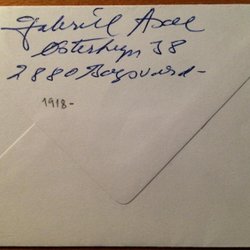 Gabriel Axel
Østerhegn 38
2880 Bagsværd-
1918-